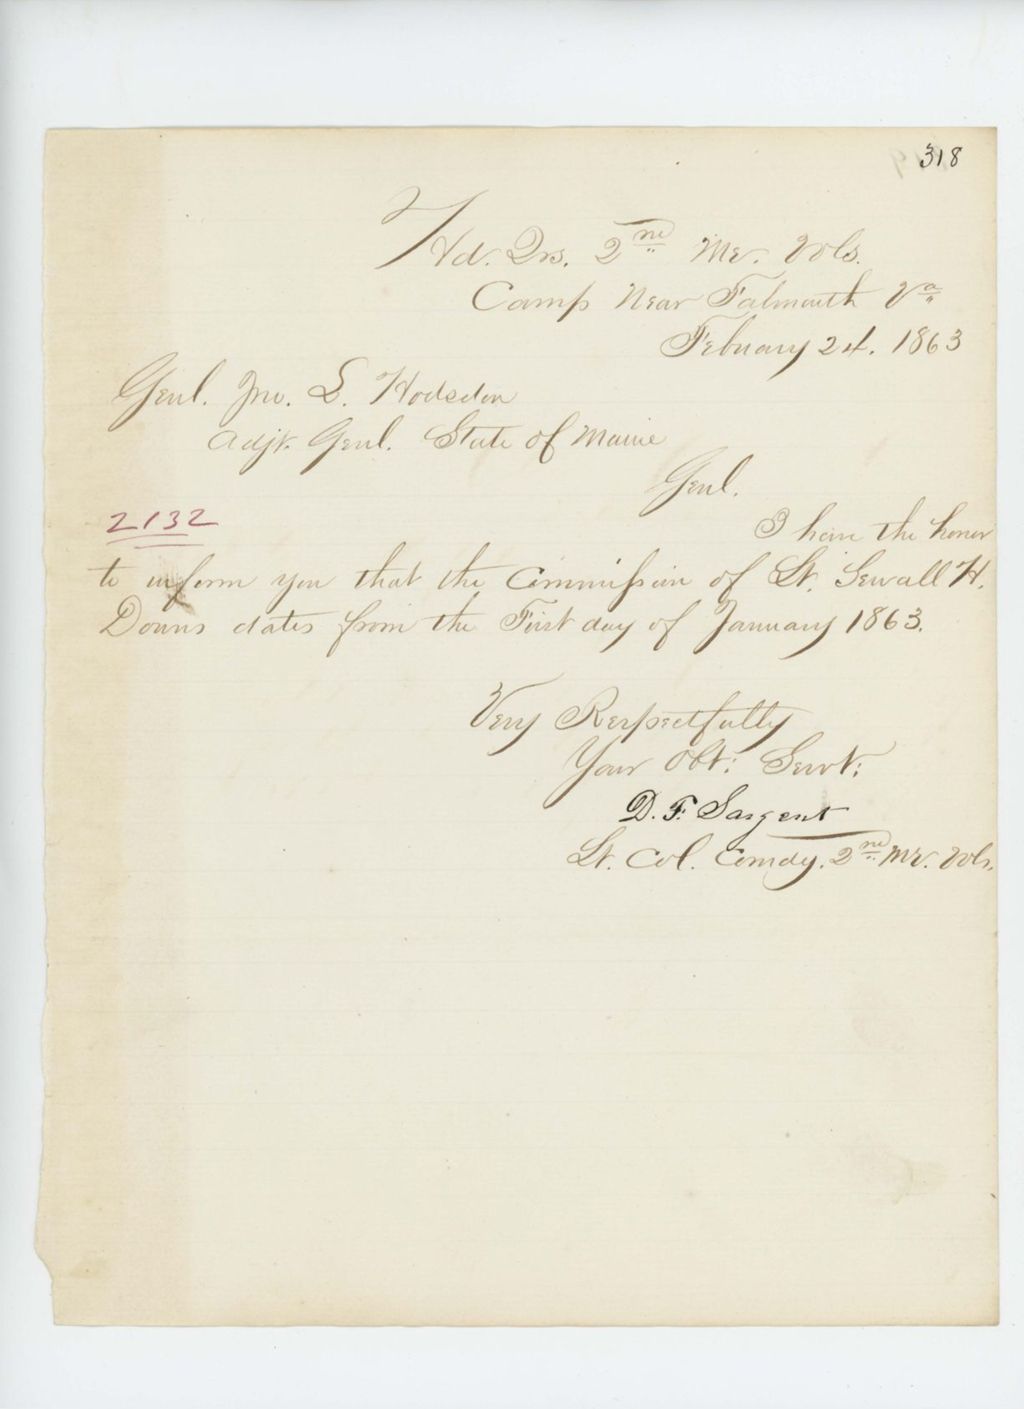 318
Hd. Qrs. 2nd Me. Vols.
Camp Near Falmouth Va
Febuary 24. 1863
Genl. Jno. L. Hodsdon
Adjt. Genl. State of Maine
Genl.
2132
I have the honor
to inform you that the Commission of Lt. Sewall H.
Downs dates from the First day of January 1863.
Very Respectfully
Your Obt: Servt:
D. F. Sargent
Lt. Col. Comdg. 2nd Me. Vols.